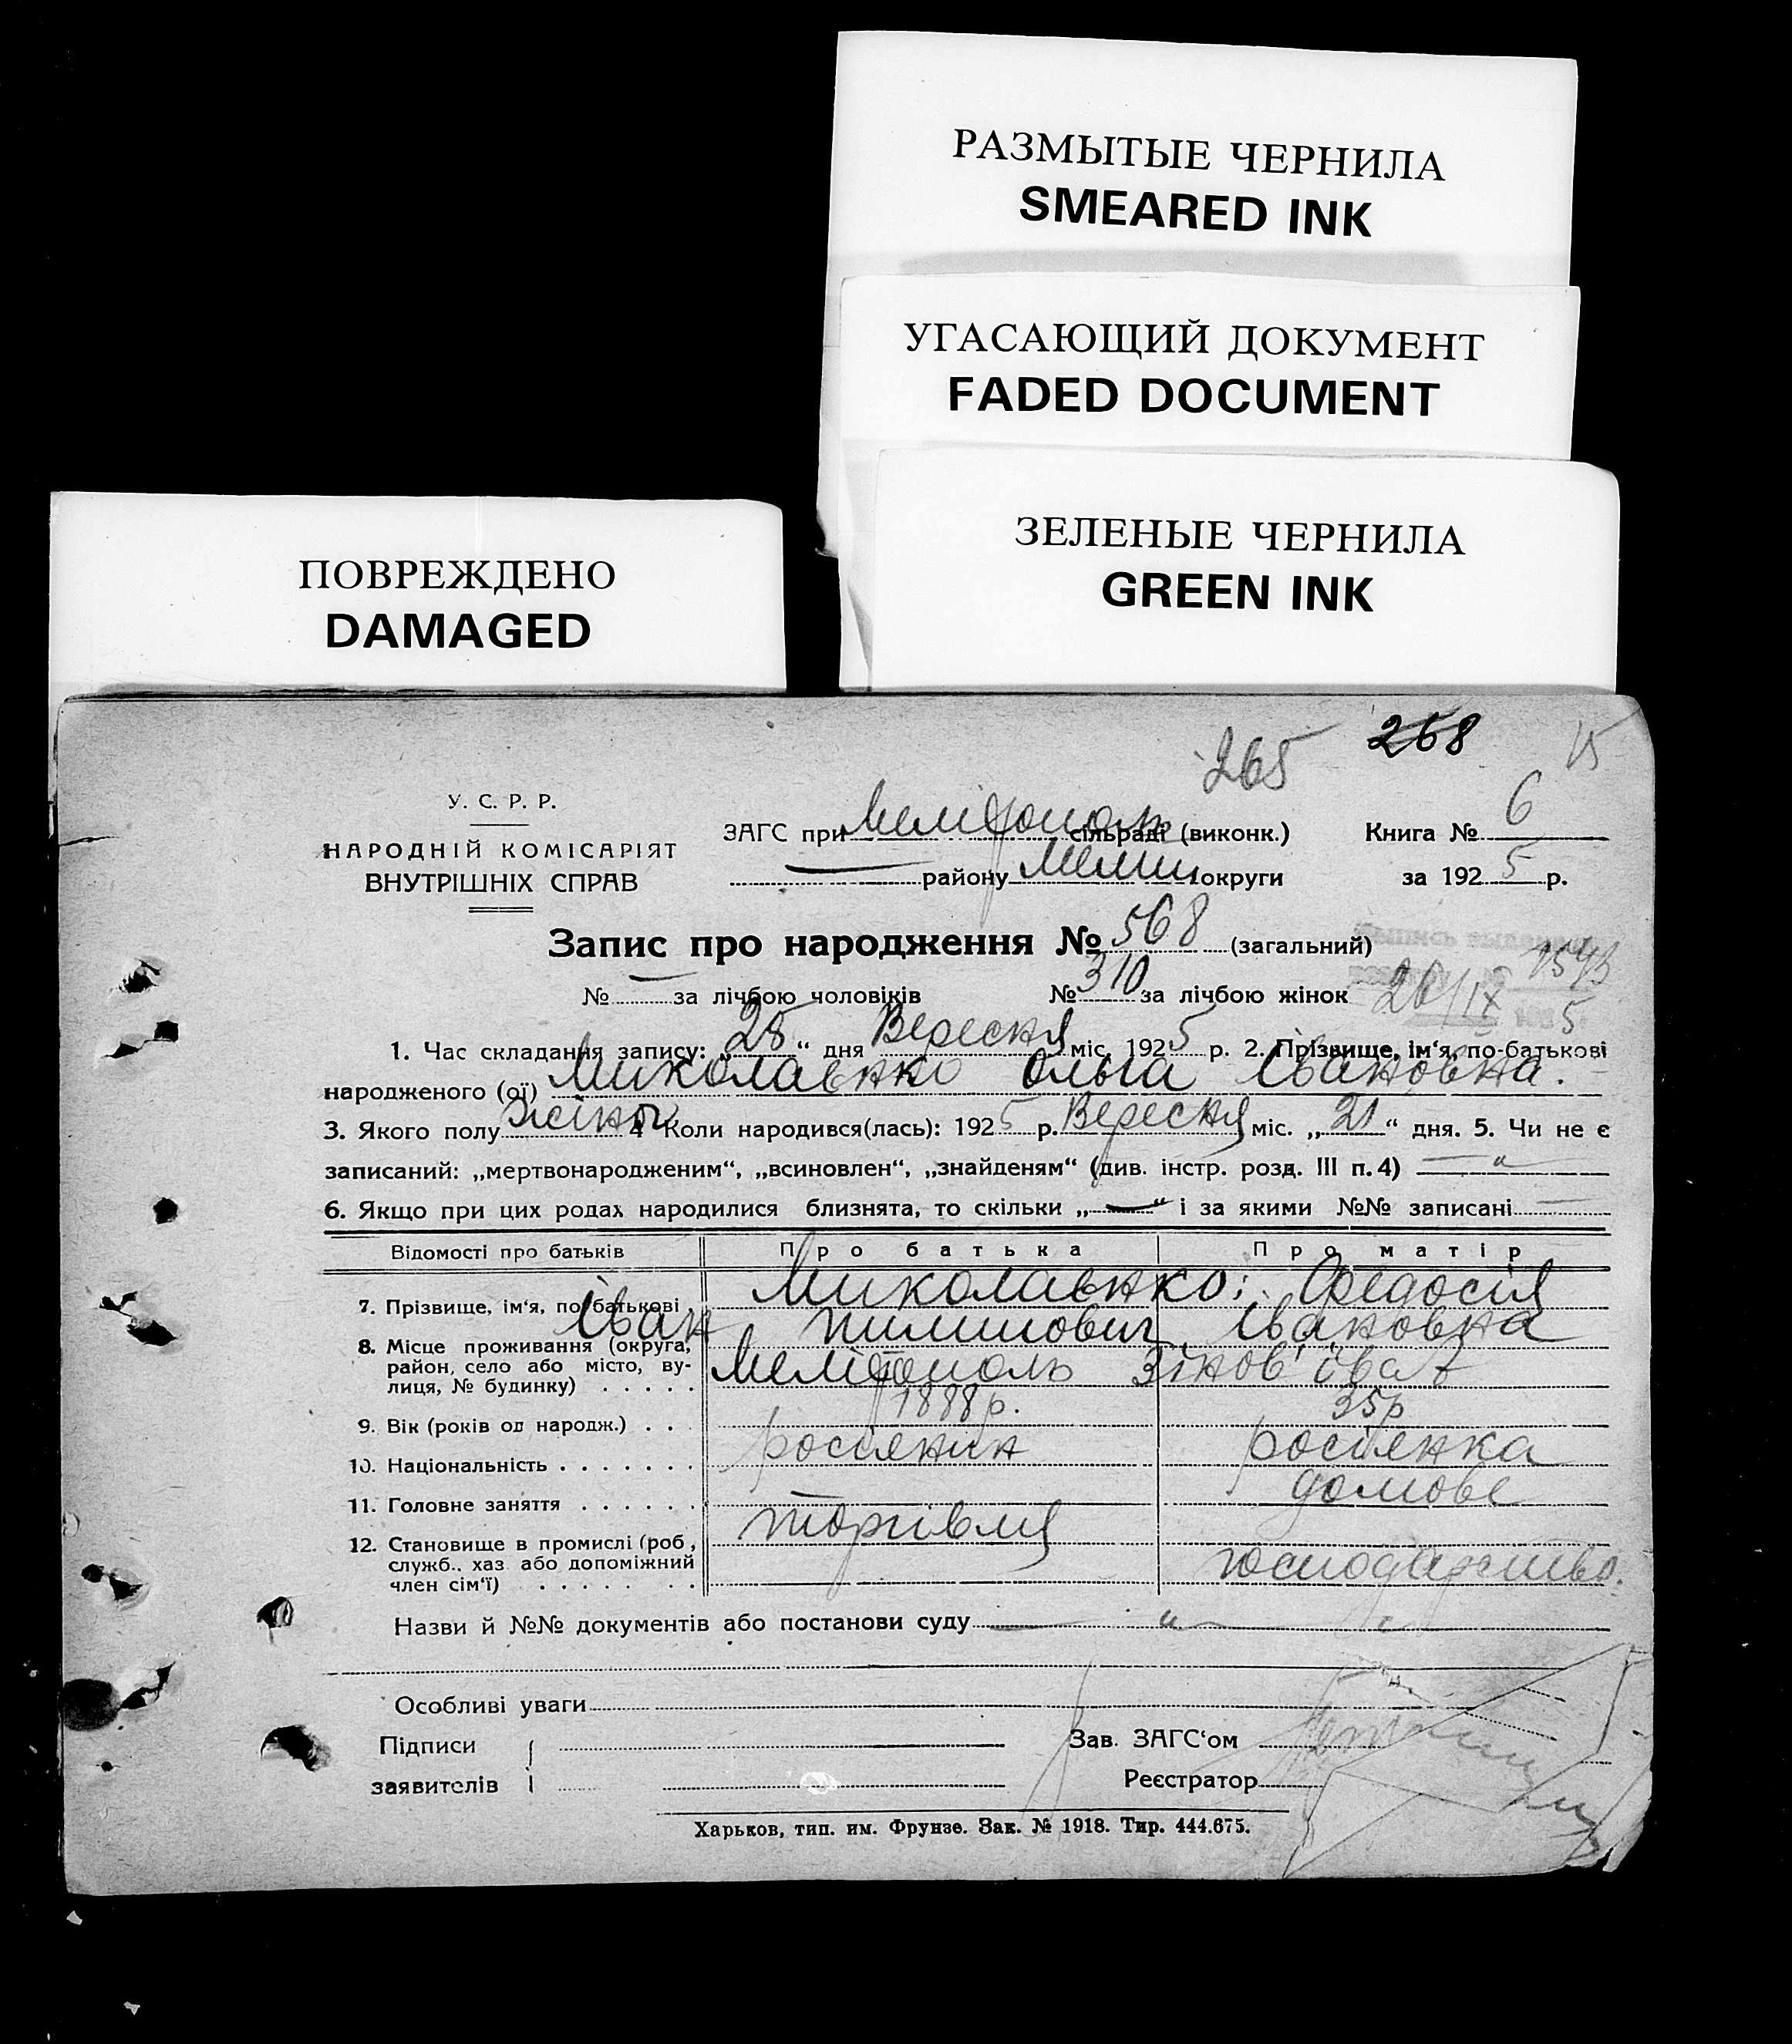 РАЗМЫТЫЕ ЧЕРНИЛА
SMEARED INK
УГАСАЮЩИЙ ДОКУМЕНТ
FADED DOCUMENT
ЗЕЛЕНЫЕ ЧЕРНИЛА
GREEN INK
ПОВРЕЖДЕНО
DAMAGED
265 268 15
У. С. Р. Р.
НАРОДНІЙ КОМІСАРІЯТ
ВНУТРІШНІХ СПРАВ
ЗАГС при Мелітополь сільраді (виконк.) Книга № 6
— району Мелит округи за 1925 р.
Запис про народження № 568 (загальний)
№ — за лічбою чоловіків № 310 за лічбою жінок
1. Час складання запису: „25“ дня Вересня міс. 1925 р. 2. Прізвище, ім‘я, по-батькові
народженого (ої) Миколаєнко Ольга Івановна.
3. Якого полу жіноч 4 Коли народився(лась): 1925 р. Вересня міс. „21“ дня. 5. Чи не є
записаний: „мертвонародженим“, „всиновлен“, „знайденям“ (див. інстр. розд. III п. 4) — „ —
6. Якщо при цих родах народилися близнята, то скільки „—“ і за якими №№ записані —
Відомості про батьків Про батька Про матір
7. Прізвище, ім‘я, по-батькові Миколаєнко: Федосія
Іван Пилипович Івановна
8. Місце проживання (округа,
район, село або місто, ву-
лиця, № будинку) . . . . . Мелітополь Зінов'їва
9. Вік (років од народж.) . . . 1888 р. 35 р
10. Національність . . . . . . . росіянин росіянка
11. Головне заняття . . . . . . торгівля домове
12. Становище в промислі (роб.,
служб., хаз або допоміжний
член сім‘ї) . . . . . . . . господарство.
Назви й №№ документів або постанови суду — „ —
Особливі уваги
Підписи
заявителів
Зав. ЗАГС‘ом
Реєстратор
Харьков, тип. им. Фрунзе. Зак. № 1918. Тир. 444.675.